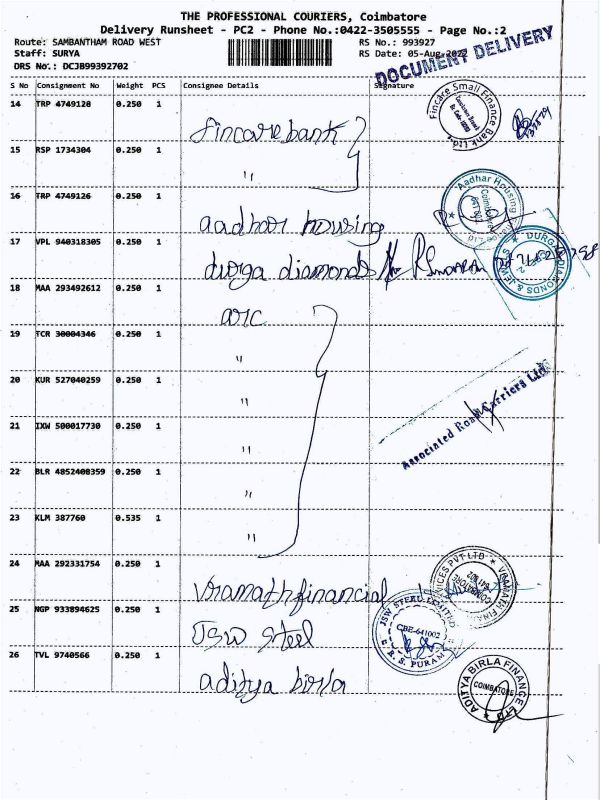 THE PROFESSIONAL COURIERS, Coimbatore
Delivery Runsheet - PC2 - Phone No.:0422-3505555 - Page No.:2
Route: SAMBANTHAM ROAD WEST
RS No.: 993927
Staff: SURYA
RS Date: 05-Aug-2022
DRS No.: DCJB99392702
DOCUMENT DELIVERY
S No Consignment No Weight PCS Consignee Details Signature
14 TRP 4749128 0.250 1 fincare bank
Fincare Small Finance Bank Ltd.
15 RSP 1734304 0.250 1 "
16 TRP 4749126 0.250 1 aadhar housing
Aadhar Housing
Coimbatore
17 VPL 940318305 0.250 1 durga diamonds
DURGA DIAMONDS & JEWELS
18 MAA 293492612 0.250 1 arc
19 TCR 30004346 0.250 1 "
20 KUR 527040259 0.250 1 "
21 IXW 500017730 0.250 1 "
Associated Road Carriers Ltd
22 BLR 4852408359 0.250 1 "
23 KLM 387760 0.535 1 "
24 MAA 292331754 0.250 1 vramath financial
25 NGP 933894625 0.250 1 JSW steel
JSW STEEL LIMITED
CBE-641002
R.S. PURAM
26 TVL 9740566 0.250 1 aditya birla
ADITYA BIRLA FINANCE LTD
COIMBATORE